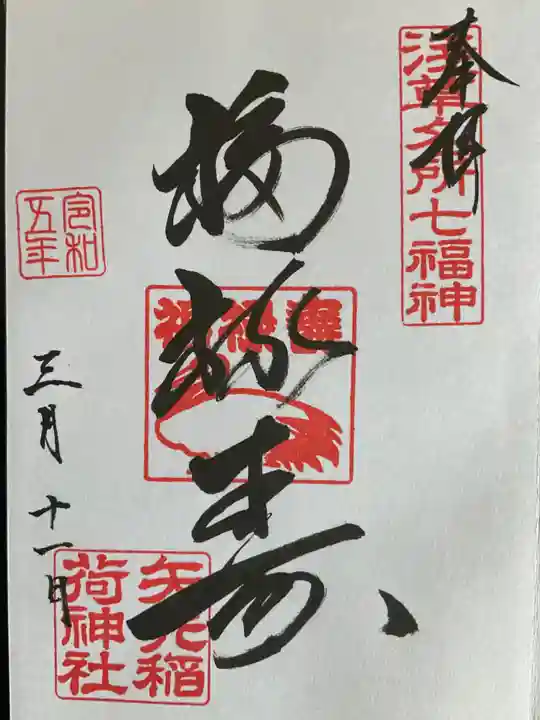 奉拝
浅草名所七福神
福禄寿
令和
五年
三月十一日
矢先稲
荷神社